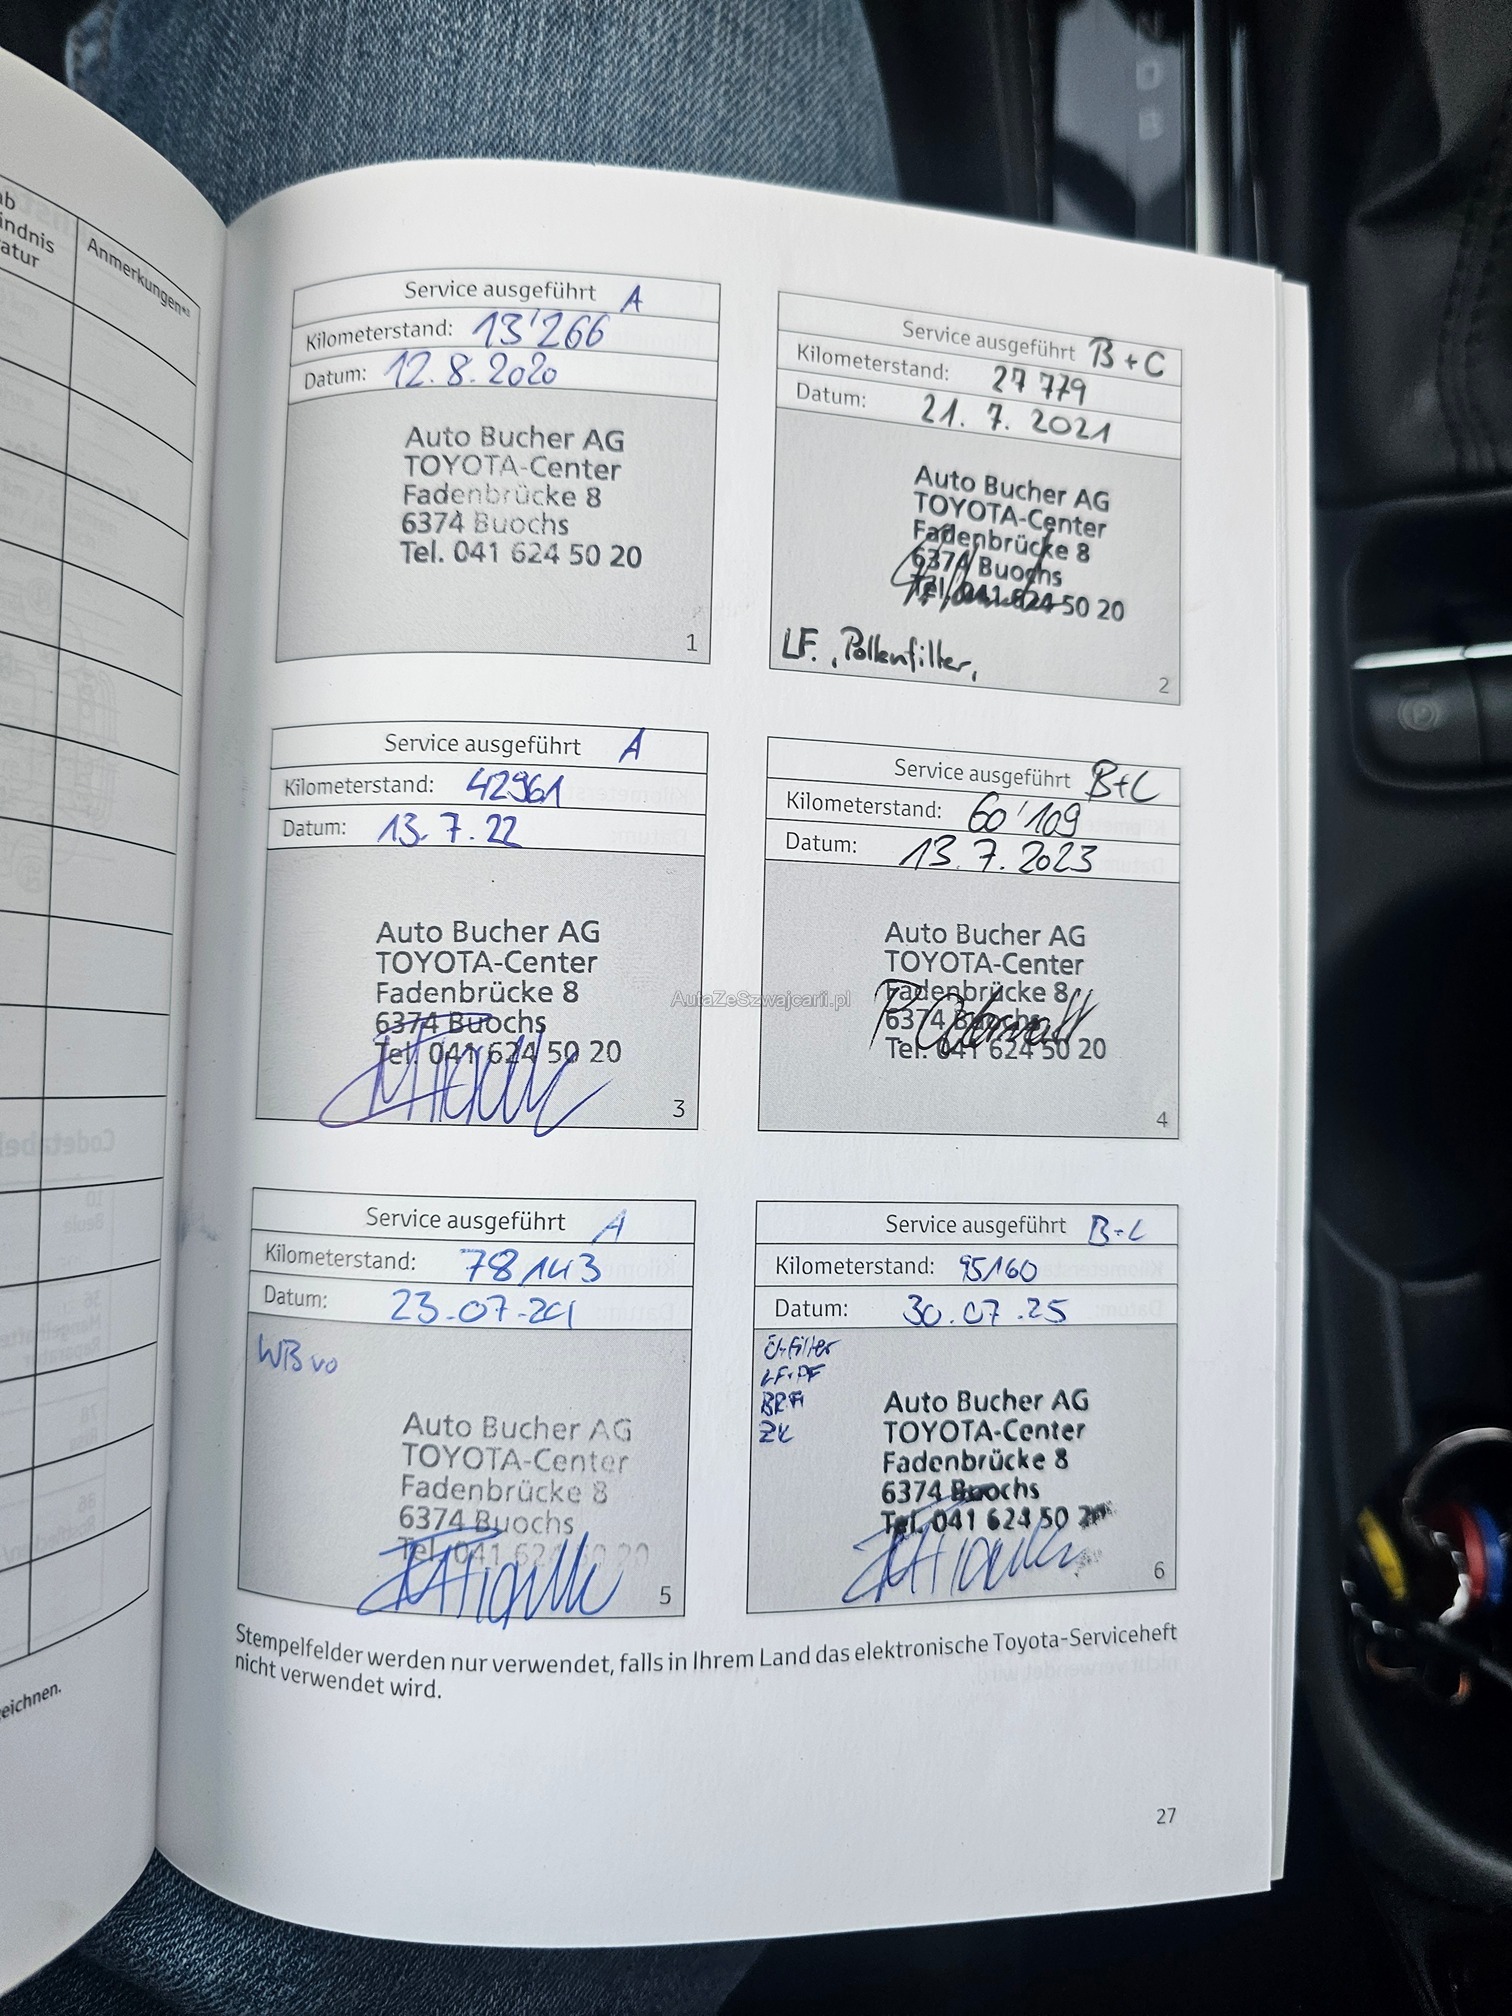 ab
ändnis
atur
Anmerkungen
eichnen.
Service ausgeführt A
Kilometerstand: 13'266
Datum: 12.8.2020
Auto Bucher AG
TOYOTA-Center
Fadenbrücke 8
6374 Buochs
Tel. 041 624 50 20
1
Service ausgeführt B+C
Kilometerstand: 27 779
Datum: 21. 7. 2021
Auto Bucher AG
TOYOTA-Center
Fadenbrücke 8
6374 Buochs
Tel. 041 624 50 20
LF., Pollenfilter,
2
Service ausgeführt A
Kilometerstand: 42961
Datum: 13.7.22
Auto Bucher AG
TOYOTA-Center
Fadenbrücke 8
6374 Buochs
Tel. 041 624 50 20
3
Service ausgeführt B+C
Kilometerstand: 60'109
Datum: 13.7.2023
Auto Bucher AG
TOYOTA-Center
Fadenbrücke 8
6374 Buochs
Tel. 041 624 50 20
4
AutaZeSzwajcarii.pl
Service ausgeführt A
Kilometerstand: 78143
Datum: 23.07.24
WB vo
Auto Bucher AG
TOYOTA-Center
Fadenbrücke 8
6374 Buochs
Tel. 041 624 50 20
5
Service ausgeführt B+C
Kilometerstand: 95160
Datum: 30.07.25
LF+PF
ZK
Auto Bucher AG
TOYOTA-Center
Fadenbrücke 8
6374 Buochs
Tel. 041 624 50 20
6
Stempelfelder werden nur verwendet, falls in Ihrem Land das elektronische Toyota-Serviceheft
nicht verwendet wird.
27